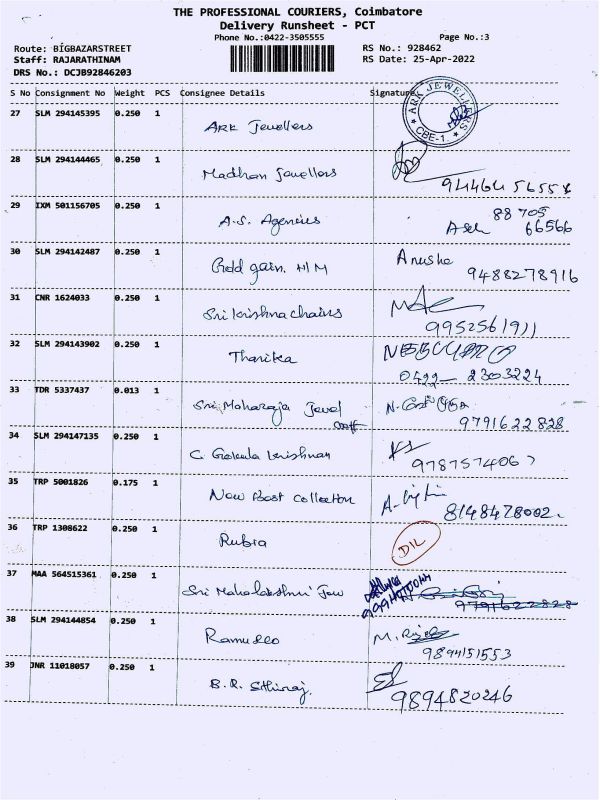 THE PROFESSIONAL COURIERS, Coimbatore
Delivery Runsheet - PCT
Phone No.:0422-3505555
Page No.:3
Route: BIGBAZARSTREET
RS No.: 928462
Staff: RAJARATHINAM
RS Date: 25-Apr-2022
DRS No.: DCJB92846203
S No Consignment No Weight PCS Consignee Details Signature
27 SLM 294145395 0.250 1 ARK Jewellers
ARK JEWELLERS CBE-1
28 SLM 294144465 0.250 1 Madhan Jewellers
94464 56558
29 IXM 501156705 0.250 1 A.S. Agencies
88 705
66566
30 SLM 294142487 0.250 1 Gold gain. H/M Anusha
9488278916
31 CNR 1624033 0.250 1 Sri krishna chains
9952561911
32 SLM 294143902 0.250 1 Tharika
0422-2303224
33 TDR 5337437 0.013 1 Sri Maharaja Jewel
9791622828
34 SLM 294147135 0.250 1 C. Gokula krishnan
9787574067
35 TRP 5001826 0.175 1 New Poast Collection
8148478002.
36 TRP 1308622 0.250 1 Rubra D/L
37 MAA 564515361 0.250 1 Sri Mahalakshmi Jew
9791622828
38 SLM 294144854 0.250 1 M.
9894151553
39 JNR 11018057 0.250 1 B.R.
9894820246